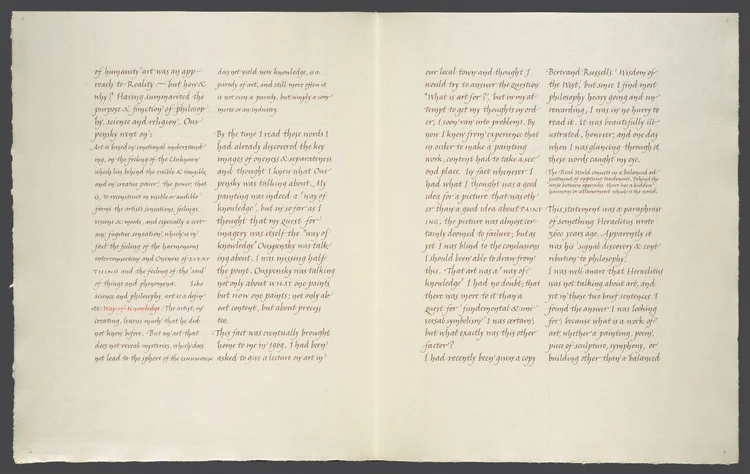 of humanity 'art was an app-
roach to Reality — but how &
why? Having summarized the
purpose & function of philosop
hy, science and religion, Ous-
pensky went on:
Art is based on emotional understand
ing, on the feeling of the Unknown
which lies behind the visible & tangible,
and on creative power, the power, that
is, to reconstruct in visible or audible
forms the artist's sensations, feelings,
visions & moods, and especially a cert-
ain fugitive sensation, which is in
fact the feeling of the harmonious
interconnection and Oneness of EVERY
THING and the feeling of the 'soul'
of things and phenomena. Like
science and philosophy, art is a defin-
ite Way of Knowledge. The artist, in
creating, learns much that he did
not know before. But an art that
does not reveal mysteries, which does
not lead to the sphere of the UNKNOWN
does not yield new knowledge, is a
parody of art, and still more often it
is not even a parody, but simply a com
merce or an industry.
By the time I read those words I
had already discovered the key
images of oneness & separateness
and thought I knew what Ous-
pensky was talking about. My
painting was indeed a "way of
knowledge", but in so far as I
thought that my quest for
imagery was itself the "way of
knowledge" Ouspensky was talk-
ing about. I was missing half
the point. Ouspensky was talking
not only about WHAT one paints
but HOW one paints; not only ab-
out content, but about process
too.
This fact was eventually brought
home to me in 1969. I had been
asked to give a lecture on art in
our local town and thought I
would try to answer the question
"What is art for?", but in my at-
tempt to get my thoughts in ord-
er, I soon ran into problems. By
now I knew from experience that
in order to make a painting
work, content had to take a sec-
ond place. In fact whenever I
had what I thought was a good
idea for a picture that was oth-
er than a good idea about PAINT
ING, the picture was almost cer-
tainly doomed to failure; but as
yet I was blind to the conclusions
I should been able to draw from
this. That art was a "way of
knowledge" I had no doubt; that
there was more to it than a
quest for 'fundamental & uni-
versal symbolism' I was certain;
but what exactly was this other
factor?
I had recently been given a copy
Bertrand Russells 'Wisdom of
the West', but since I find most
philosophy heavy going and un-
rewarding, I was in no hurry to
read it. It was beautifully ill-
ustrated, however, and one day
when I was glancing through it,
these words caught my eye.
The Real World consists in a balanced ad
justment of opposing tendencies. Behind the
strife between opposites there lies a hidden
harmony or attunement which is the world.
This statement was a paraphrase
of something Heraclitus wrote
years ago. Apparently it
was his 'signal discovery & cont
ribution to philosophy.'
I was well aware that Heraclitus
was not talking about art, and
yet in these two brief sentences I
found the answer I was looking
for; because what is a work of
art, whether a painting, poem,
piece of sculpture, symphony, or
building other than a 'balanced